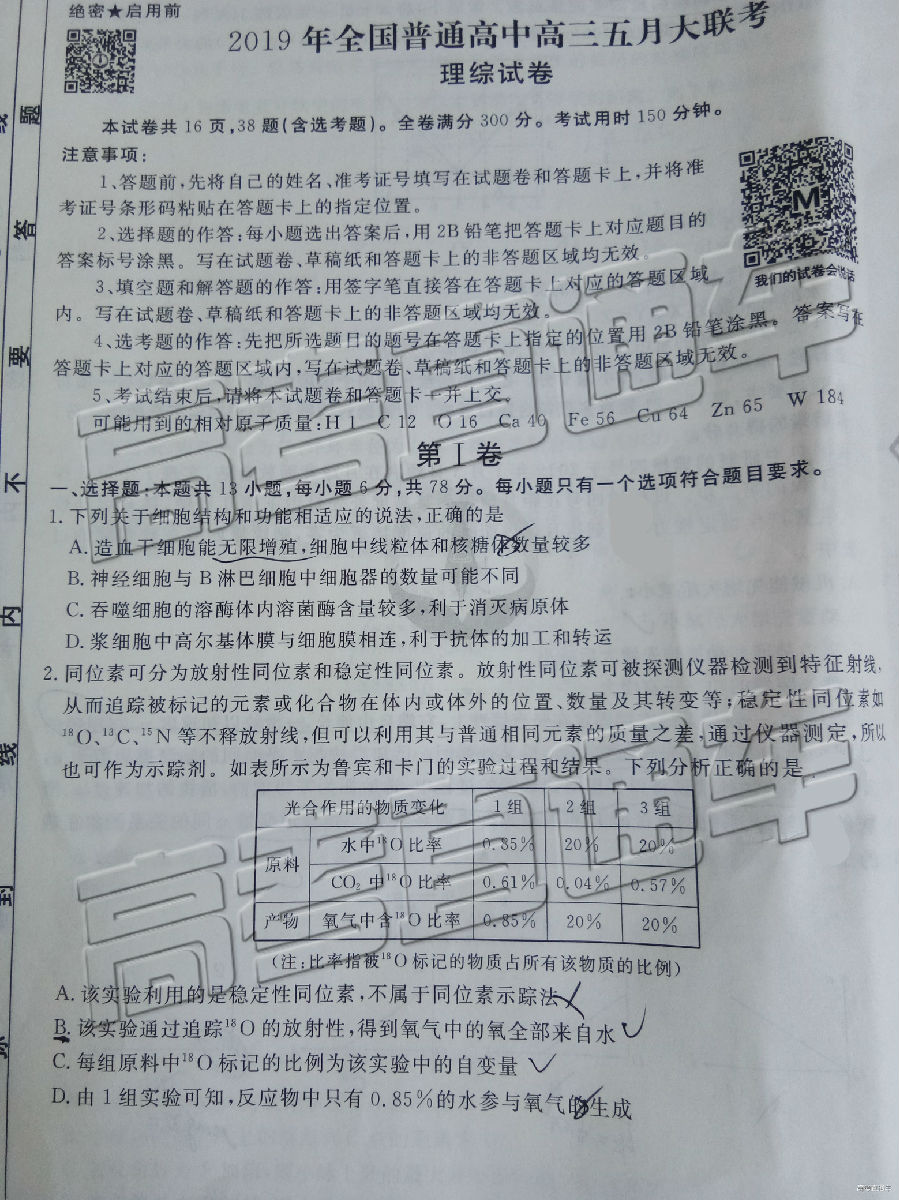 绝密★启用前
2019年全国普通高中高三五月大联考
理综试卷
本试卷共16页,38题(含选考题)。全卷满分300分。考试用时150分钟。
注意事项:
1、答题前,先将自己的姓名、准考证号填写在试题卷和答题卡上,并将准
考证号条形码粘贴在答题卡上的指定位置。
2、选择题的作答:每小题选出答案后,用2B铅笔把答题卡上对应题目的
答案标号涂黑。写在试题卷、草稿纸和答题卡上的非答题区域均无效。
3、填空题和解答题的作答:用签字笔直接答在答题卡上对应的答题区域
内。写在试题卷、草稿纸和答题卡上的非答题区域均无效。
4、选考题的作答:先把所选题目的题号在答题卡上指定的位置用2B铅笔涂黑。答案写在
答题卡上对应的答题区域内,写在试题卷、草稿纸和答题卡上的非答题区域无效。
5、考试结束后,请将本试题卷和答题卡一并上交。
可能用到的相对原子质量:H 1 C 12 O 16 Ca 40 Fe 56 Cu 64 Zn 65 W 184
M
我们的试卷会说话
第Ⅰ卷
一、选择题:本题共13小题,每小题6分,共78分。每小题只有一个选项符合题目要求。
1. 下列关于细胞结构和功能相适应的说法,正确的是
A. 造血干细胞能无限增殖,细胞中线粒体和核糖体数量较多
B. 神经细胞与B淋巴细胞中细胞器的数量可能不同
C. 吞噬细胞的溶酶体内溶菌酶含量较多,利于消灭病原体
D. 浆细胞中高尔基体膜与细胞膜相连,利于抗体的加工和转运
2. 同位素可分为放射性同位素和稳定性同位素。放射性同位素可被探测仪器检测到特征射线,
从而追踪被标记的元素或化合物在体内或体外的位置、数量及其转变等;稳定性同位素如
¹⁸O、¹³C、¹⁵N等不释放射线,但可以利用其与普通相同元素的质量之差,通过仪器测定,所以
也可作为示踪剂。如表所示为鲁宾和卡门的实验过程和结果。下列分析正确的是
光合作用的物质变化 1组 2组 3组
原料 水中¹⁸O比率 0.85% 20% 20%
CO₂中¹⁸O比率 0.61% 0.04% 0.57%
产物 氧气中含¹⁸O比率 0.85% 20% 20%
(注:比率指被¹⁸O标记的物质占所有该物质的比例)
A. 该实验利用的是稳定性同位素,不属于同位素示踪法
B. 该实验通过追踪¹⁸O的放射性,得到氧气中的氧全部来自水
C. 每组原料中¹⁸O标记的比例为该实验中的自变量
D. 由1组实验可知,反应物中只有0.85%的水参与氧气的生成
题
答
要
不
内
线
封
高考直通车
高考直通车